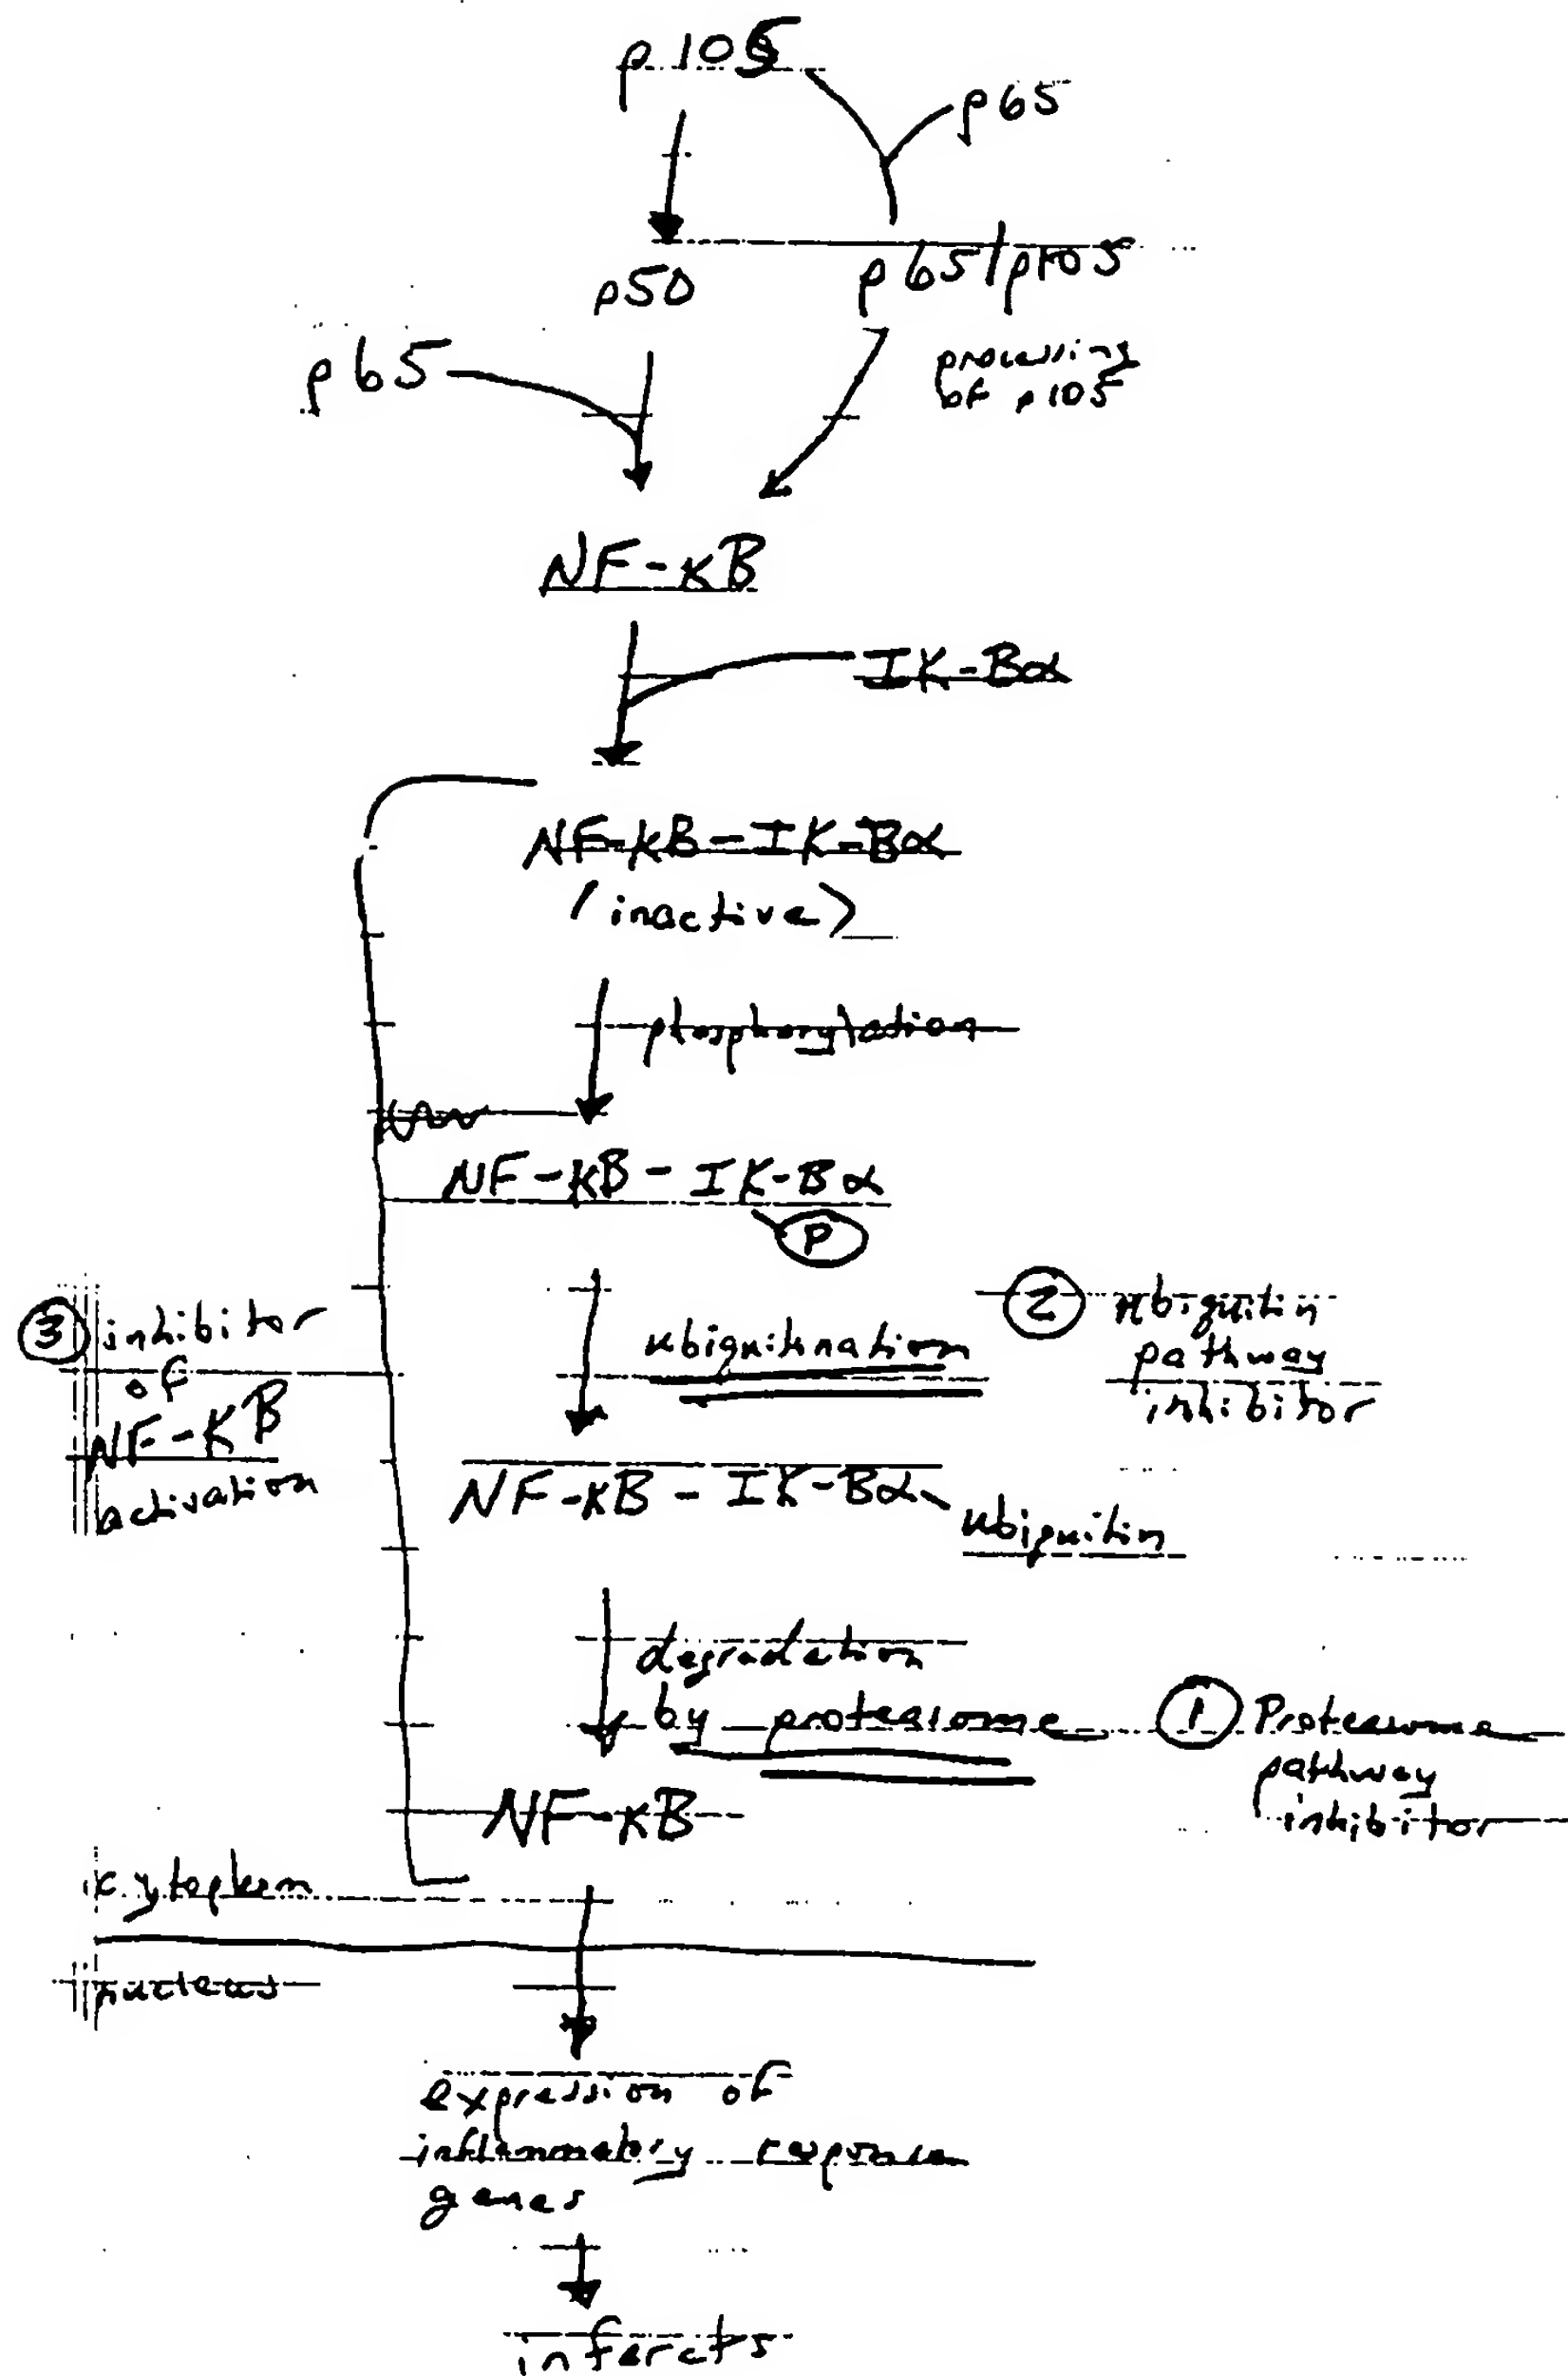 p 105
p65
p50
p 65/p105
p65
processing
of p105
NF-κB
IK-Bα
NF-κB-IK-Bα
(inactive)
phosphorylation
NF-κB-IK-Bα
P
ubiquitination
2 ubiquitin
pathway
inhibitor
3 inhibitor
of
NF-κB
activation
NF-κB-IK-Bα
ubiquitin
degradation
by proteasome
1 Proteasome
pathway
inhibitor
NF-κB
cytoplasm
nucleus
expression of
inflammatory response
genes
infarcts